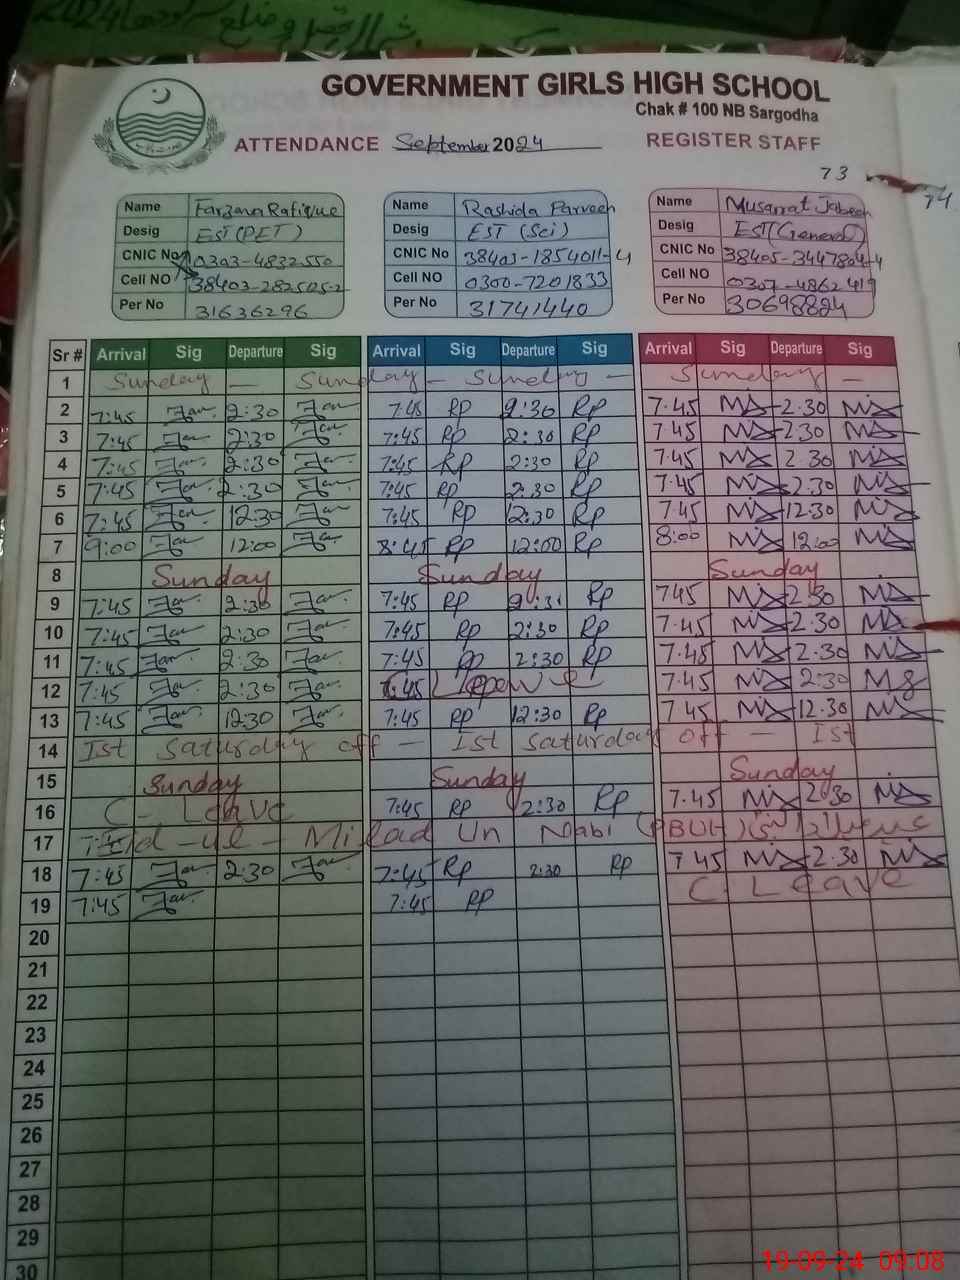 2024
GOVERNMENT GIRLS HIGH SCHOOL
Chak # 100 NB Sargodha
ATTENDANCE September 2024 REGISTER STAFF
73
74
Name Farzana Rafique Name Rashida Parveen Name Musarrat Jabeen
Desig EST (PET) Desig EST (Sci) Desig EST (General)
CNIC No 0303-4832550 CNIC No 38403-1854011-4 CNIC No 38405-3447804-4
Cell NO 38403-282505-2 Cell NO 0300-7201833 Cell NO 0307-4862419
Per No 31636296 Per No 31741440 Per No 30698824
Sr # Arrival Sig Departure Sig Arrival Sig Departure Sig Arrival Sig Departure Sig
1 Sunday — Sunday — Sunday — Sunday —
2 7:45 Far 2:30 Far 7:45 RP 2:30 RP 7.45 2.30
3 7:45 Far 2:30 Far 7:45 RP 2:30 RP 7.45 2.30
4 7:45 Far 2:30 Far 7:45 RP 2:30 RP 7.45 2.30
5 7:45 Far 2:30 Far 7:45 RP 2:30 RP 7.45 2.30
6 7:45 Far 12:30 Far 7:45 RP 12:30 RP 7.45 12.30
7 9:00 Far 12:00 Far 8:45 RP 12:00 RP 8:00 12:00
8 Sunday Sunday Sunday
9 7:45 Far 2:30 Far 7:45 RP 2:31 RP 7.45 2.30
10 7:45 Far 2:30 Far 7:45 RP 2:30 RP 7.45 2.30
11 7:45 Far 2:30 Far 7:45 RP 2:30 RP 7.45 2.30
12 7:45 Far 2:30 Far 7:45 C Leave 7.45 2:30
13 7:45 Far 12:30 Far 7:45 RP 12:30 RP 7.45 12.30
14 Ist Saturday off — Ist Saturday off — Ist
15 Sunday Sunday Sunday
16 C - Leave 7:45 RP 2:30 RP 7.45 2.30
17 Eid - ul - Milad Un Nabi (PBUH)
18 7:45 Far 2:30 Far 7:45 RP 2:30 RP 7.45 2.30
19 7:45 Far 7:45 RP C Leave
20
21
22
23
24
25
26
27
28
29
30
19-09-24 09:08